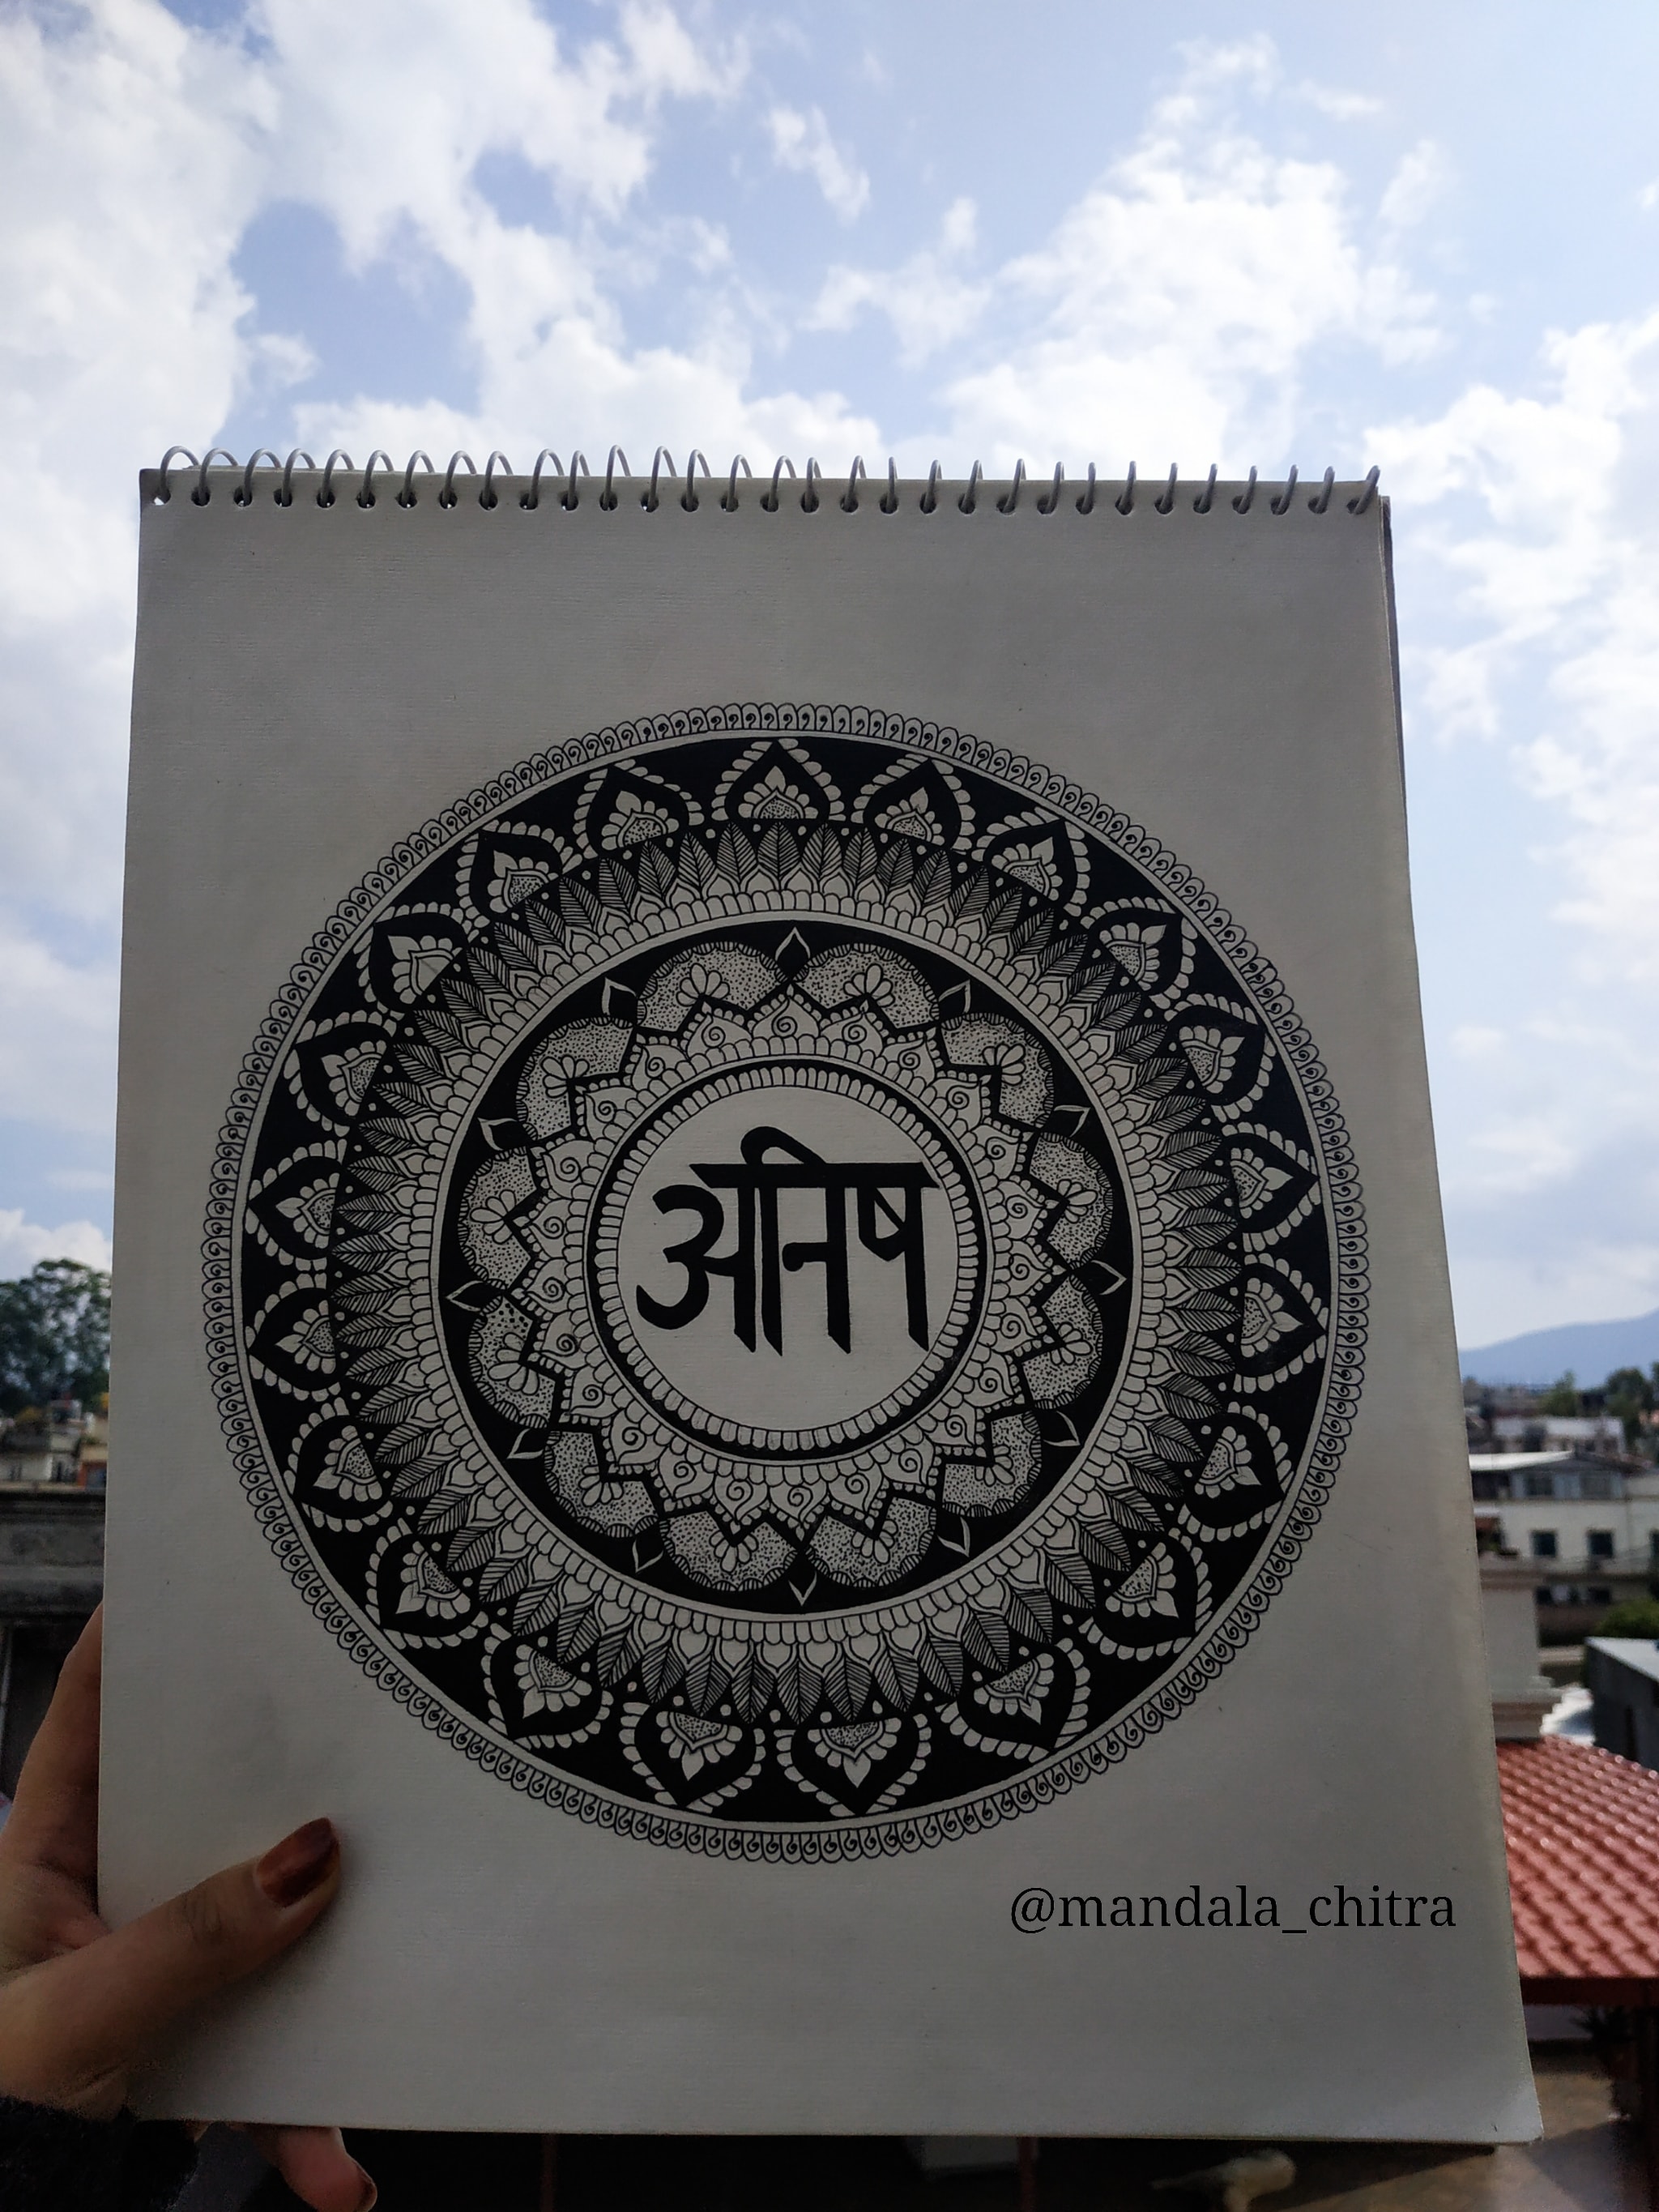 अनिष
@mandala_chitra